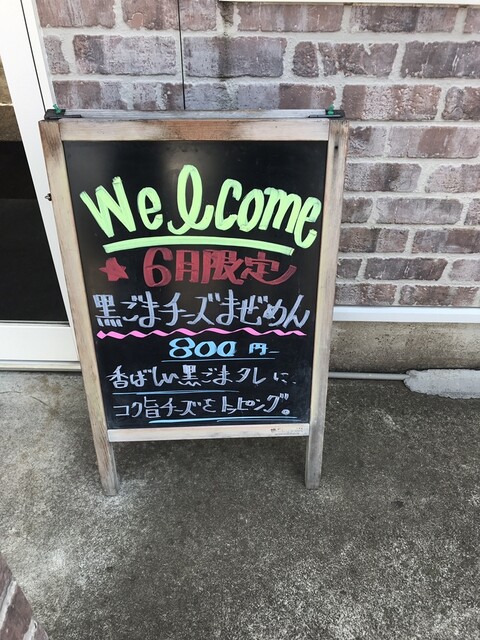 Welcome
★ 6月限定
黒ごまチーズまぜめん
800円
香ばしい黒ごまタレに、
コク旨チーズをトッピング!